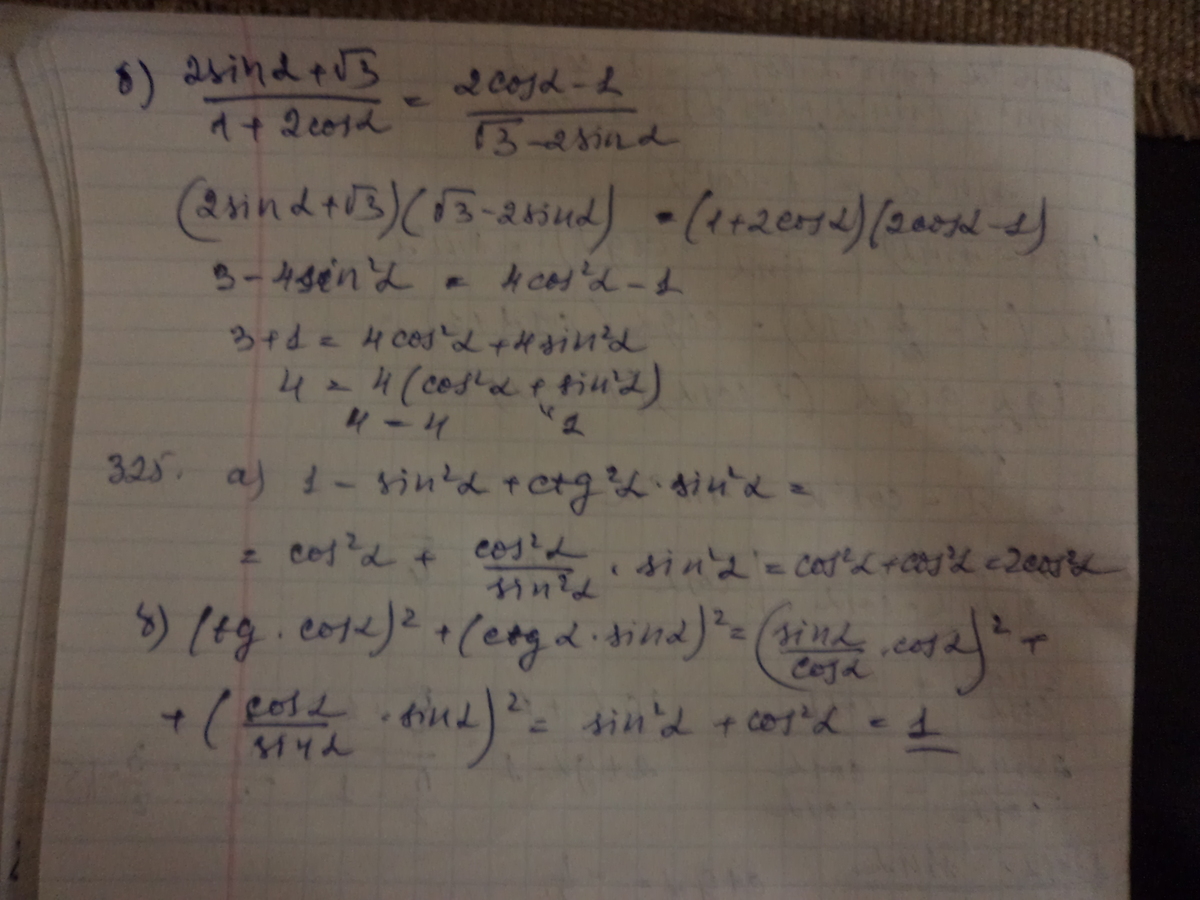 б) (2sinα+√3)/(1+2cosα) = (2cosα-1)/(√3-2sinα)
(2sinα+√3)(√3-2sinα) = (1+2cosα)(2cosα-1)
3-4sin²α = 4cos²α-1
3+1 = 4cos²α+4sin²α
4 = 4(cos²α+sin²α)
4 = 4 "1
325. а) 1-sin²α+ctg²α·sin²α =
= cos²α + cos²α/sin²α · sin²α = cos²α+cos²α=2cos²α
б) (tg·cosα)²+(ctgα·sinα)²=(sinα/cosα·cosα)²+
+(cosα/sinα·sinα)² = sin²α+cos²α = 1